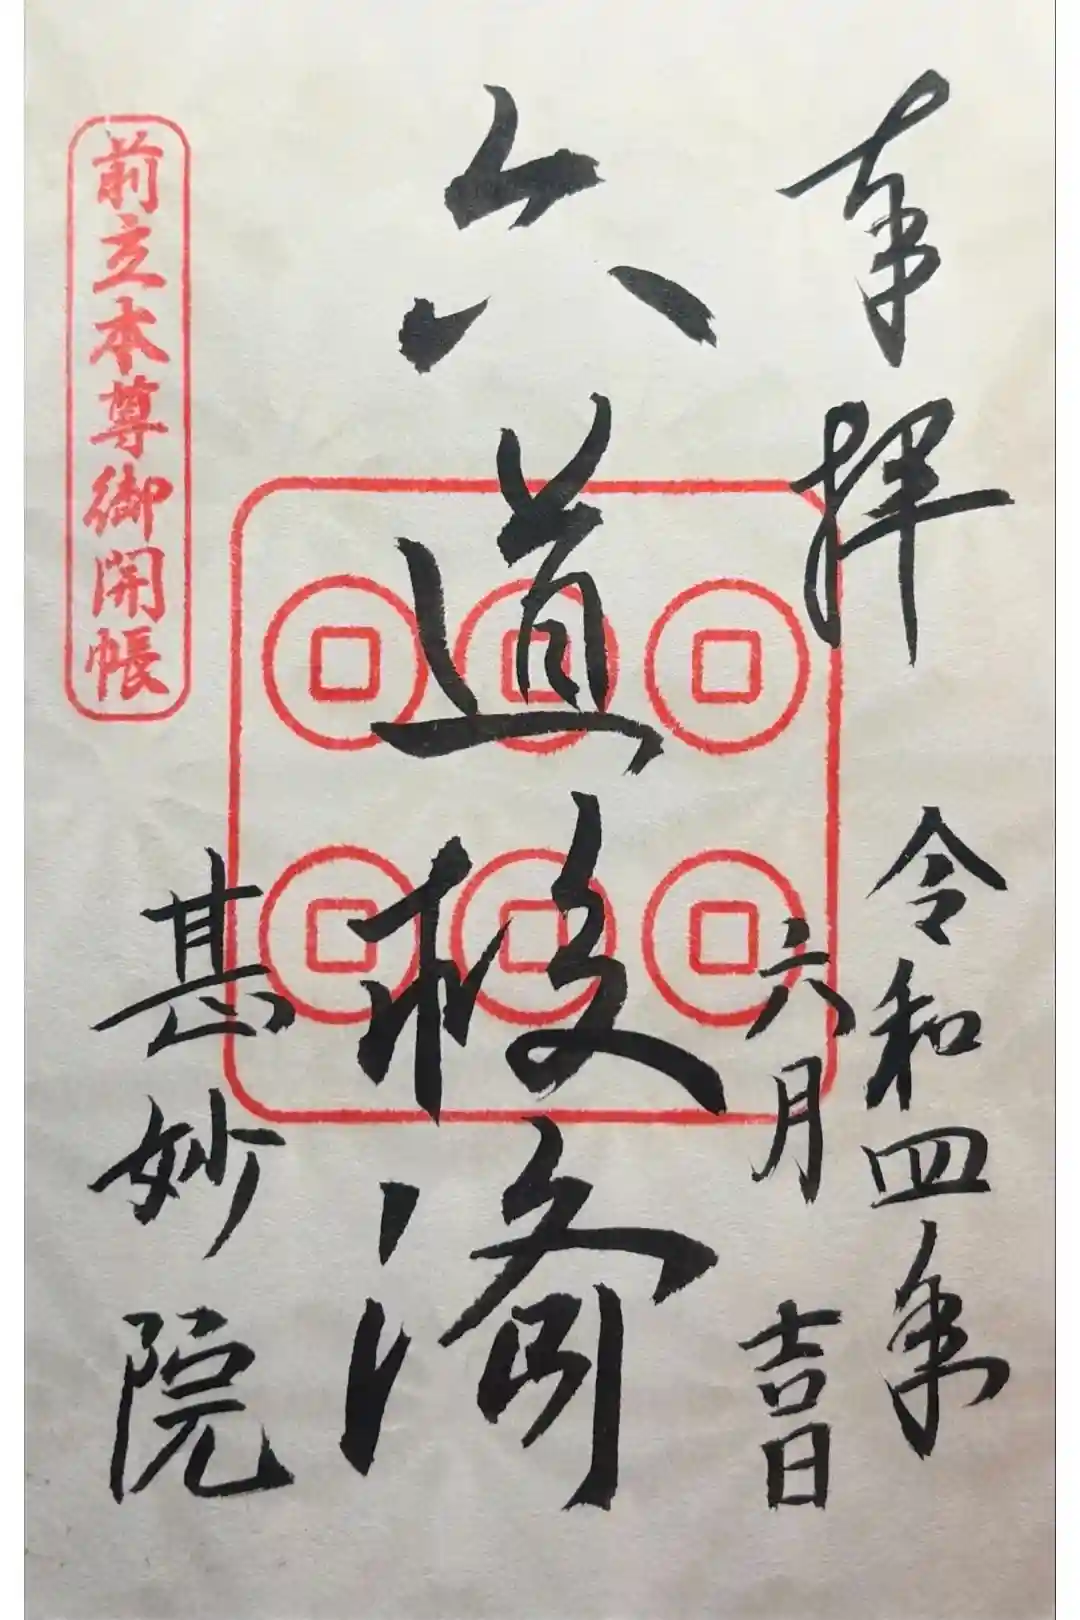 奉拝
令和四年
六月吉日
六道救済
前立本尊御開帳
甚妙院